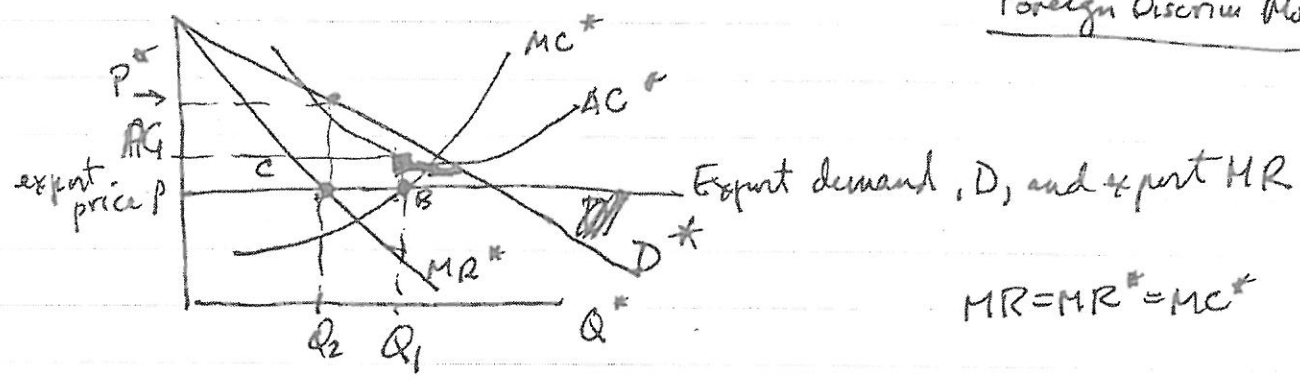 Foreign Discrim
MC*
P*
AC*
AC
C
export
price P
B
Export demand, D, and export MR
D*
MR*
MR=MR*=MC*
Q2
Q1
Q*